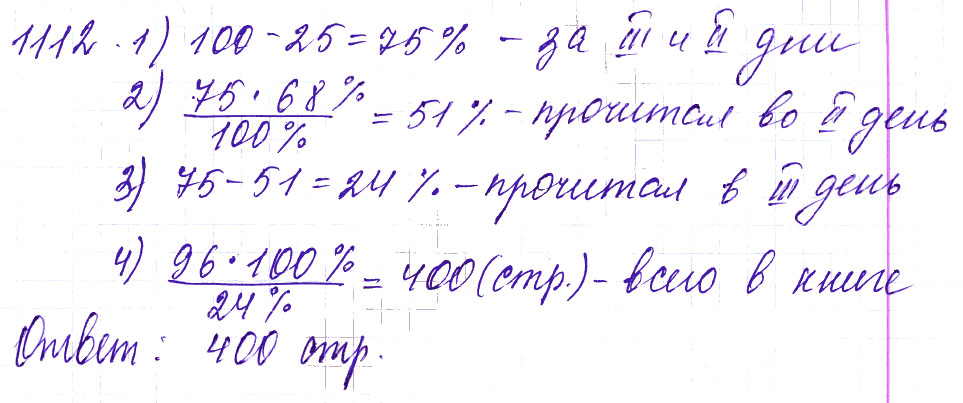 1112. 1) 100 - 25 = 75% - за III и II дни
2) 75 · 68% / 100% = 51% - прочитал во II день
3) 75 - 51 = 24% - прочитал в III день
4) 96 · 100% / 24% = 400 (стр.) - всего в книге
Ответ: 400 стр.